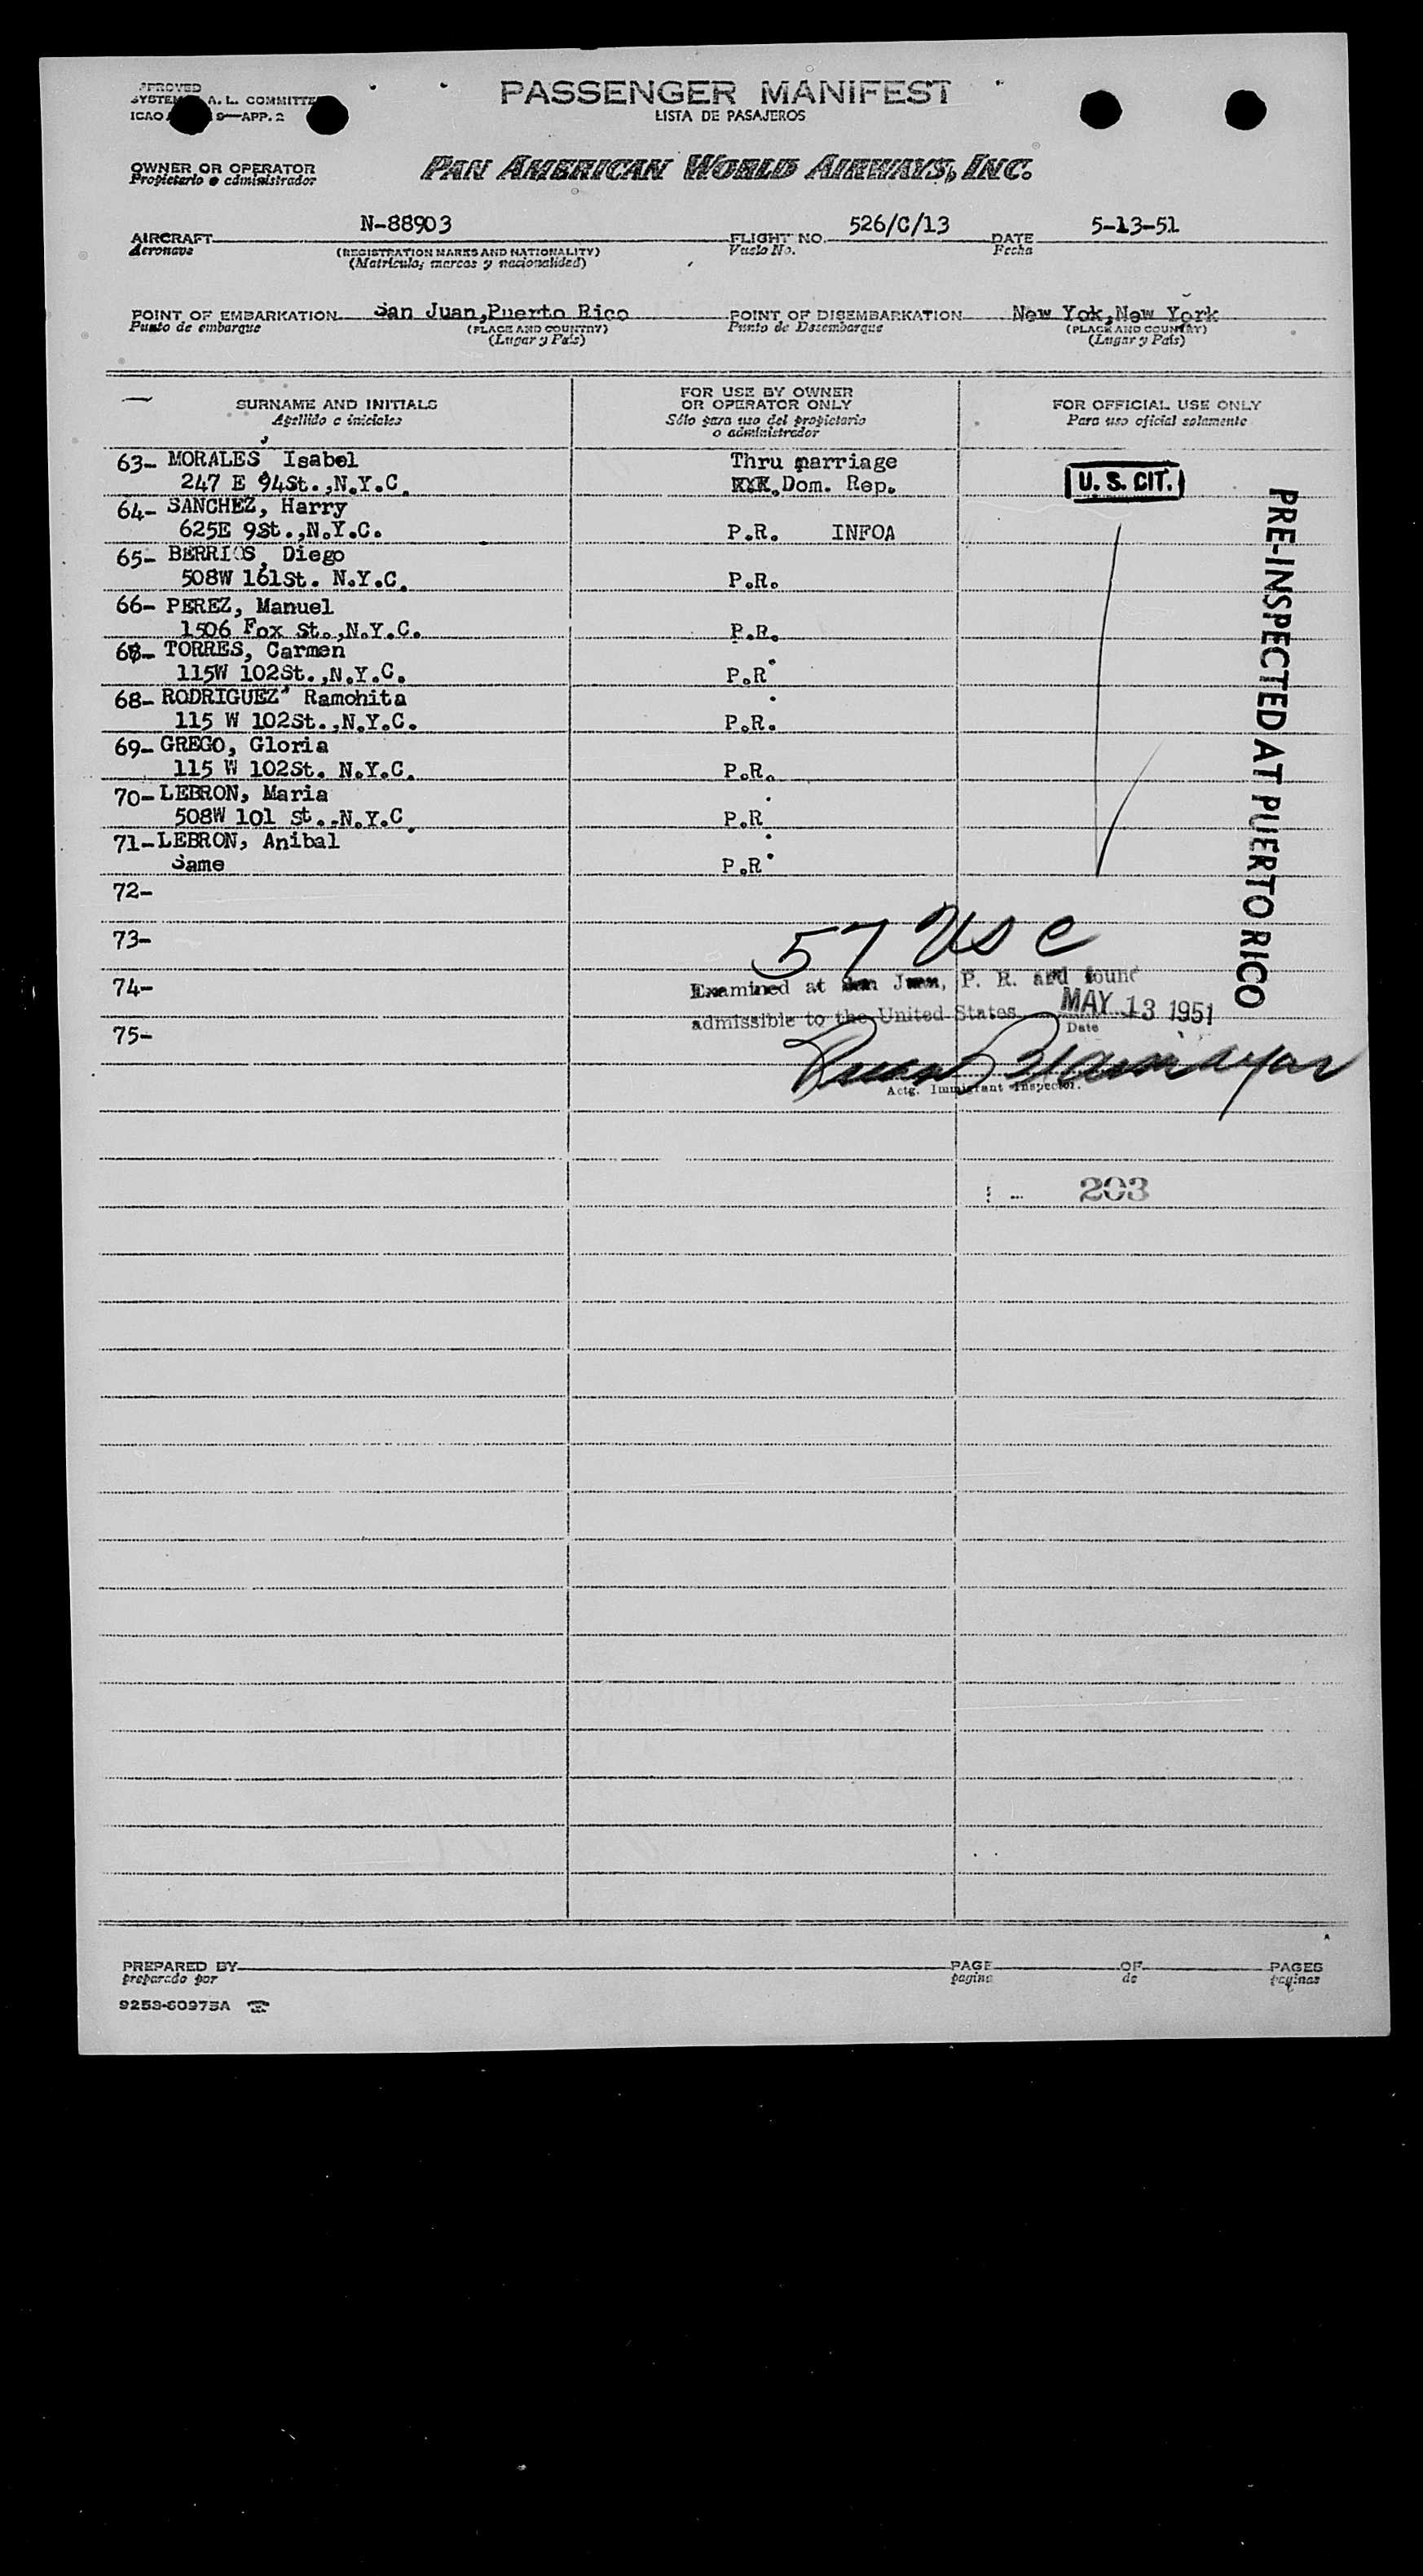 PASSENGER MANIFEST
LISTA DE PASAJEROS
A. L. COMMITTEE
ICAO 9—APP. 2
OWNER OR OPERATOR
Propietario o administrador
PAN AMERICAN WORLD AIRWAYS, INC.
AIRCRAFT N-88903 FLIGHT NO. 526/C/13 DATE 5-13-51
Aeronave (REGISTRATION MARKS AND NATIONALITY) Vuelo No. Fecha
(Matricula, marcas y nacionalidad)
POINT OF EMBARKATION San Juan,Puerto Rico POINT OF DISEMBARKATION New Yok,New York
Punto de embarque (PLACE AND COUNTRY) Punto de Desembarque (PLACE AND COUNTRY)
(Lugar y Pais) (Lugar y Pais)
SURNAME AND INITIALS
Apellido e iniciales
FOR USE BY OWNER
OR OPERATOR ONLY
Sólo para uso del propietario
o administrador
FOR OFFICIAL USE ONLY
Para uso oficial solamente
63- MORALES, Isabel Thru marriage
247 E 94St.,N.Y.C. Dom. Rep. U. S. CIT.
64- SANCHEZ, Harry
625E 9St.,N.Y.C. P.R. INFOA
65- BERRIOS, Diego
508W 161St. N.Y.C. P.R.
66- PEREZ, Manuel
1506 Fox St.,N.Y.C. P.R.
TORRES, Carmen
115W 102St.,N.Y.C. P.R.
68- RODRIGUEZ, Ramonita
115 W 102St.,N.Y.C. P.R.
69- GREGO, Gloria
115 W 102St. N.Y.C. P.R.
70- LEBRON, Maria
508W 101 St.,N.Y.C. P.R.
71- LEBRON, Anibal
Same P.R.
72-
73-
74-
75-
PRE-INSPECTED AT PUERTO RICO
57 USC
Examined at San Juan, P. R. and found
admissible to the United States MAY 13 1951
Date
Actg. Immigrant Inspector.
203
PREPARED BY PAGE OF PAGES
preparado por pagina de paginas
9253-60975A